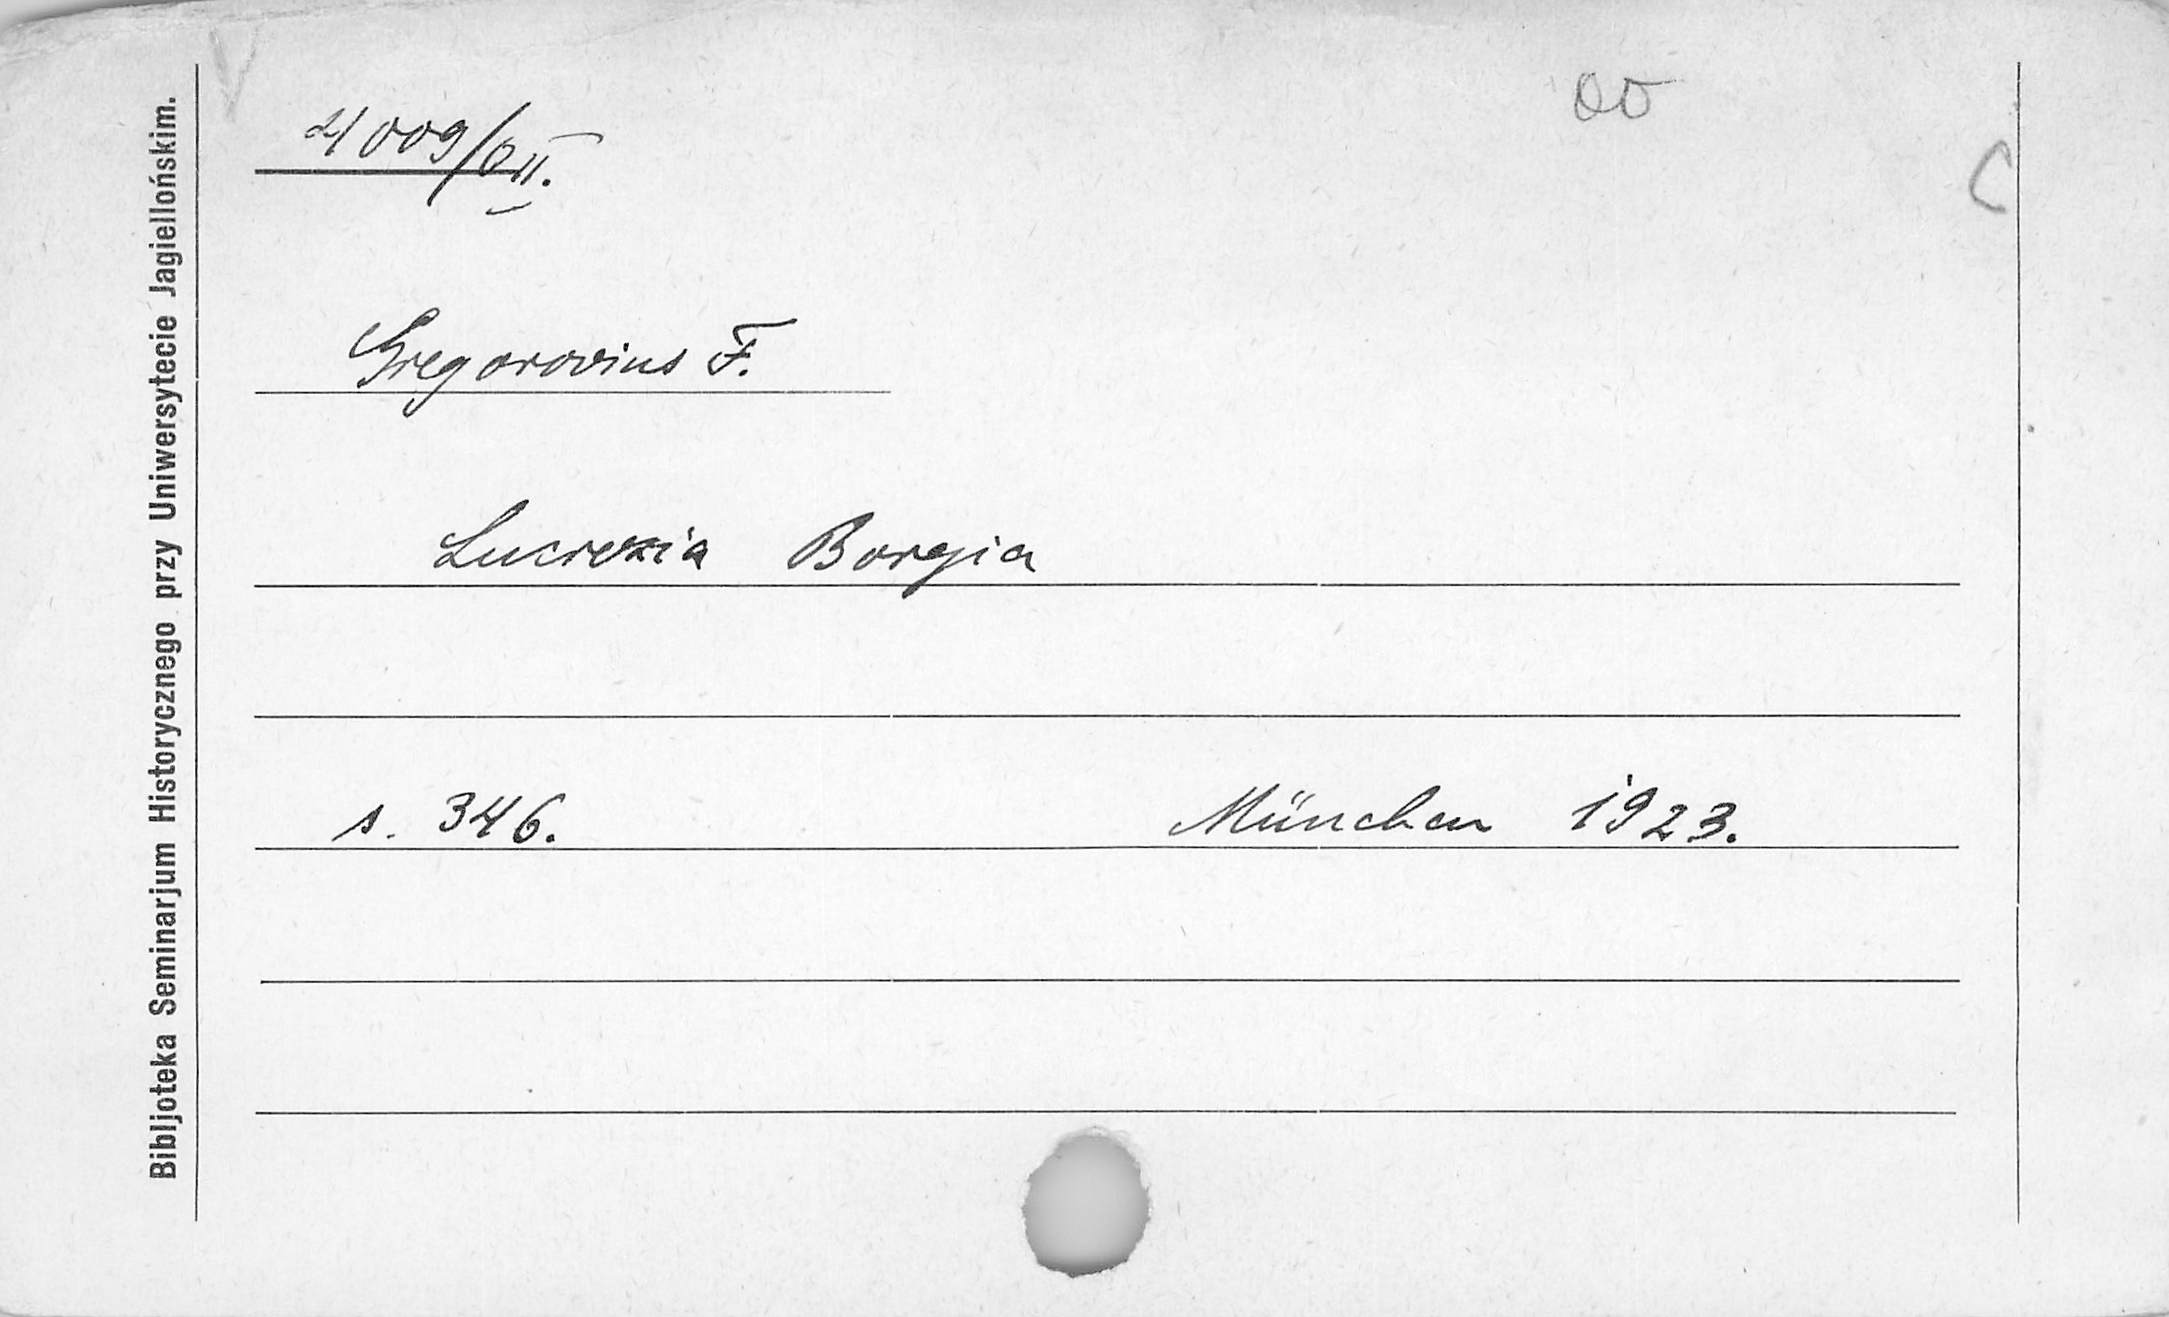 Bibljoteka Seminarjum Historycznego przy Uniwersytecie Jagiellońskim.
4009/
Gregorovius F.
Lucrezia Borgia
s. 346. München 1923.